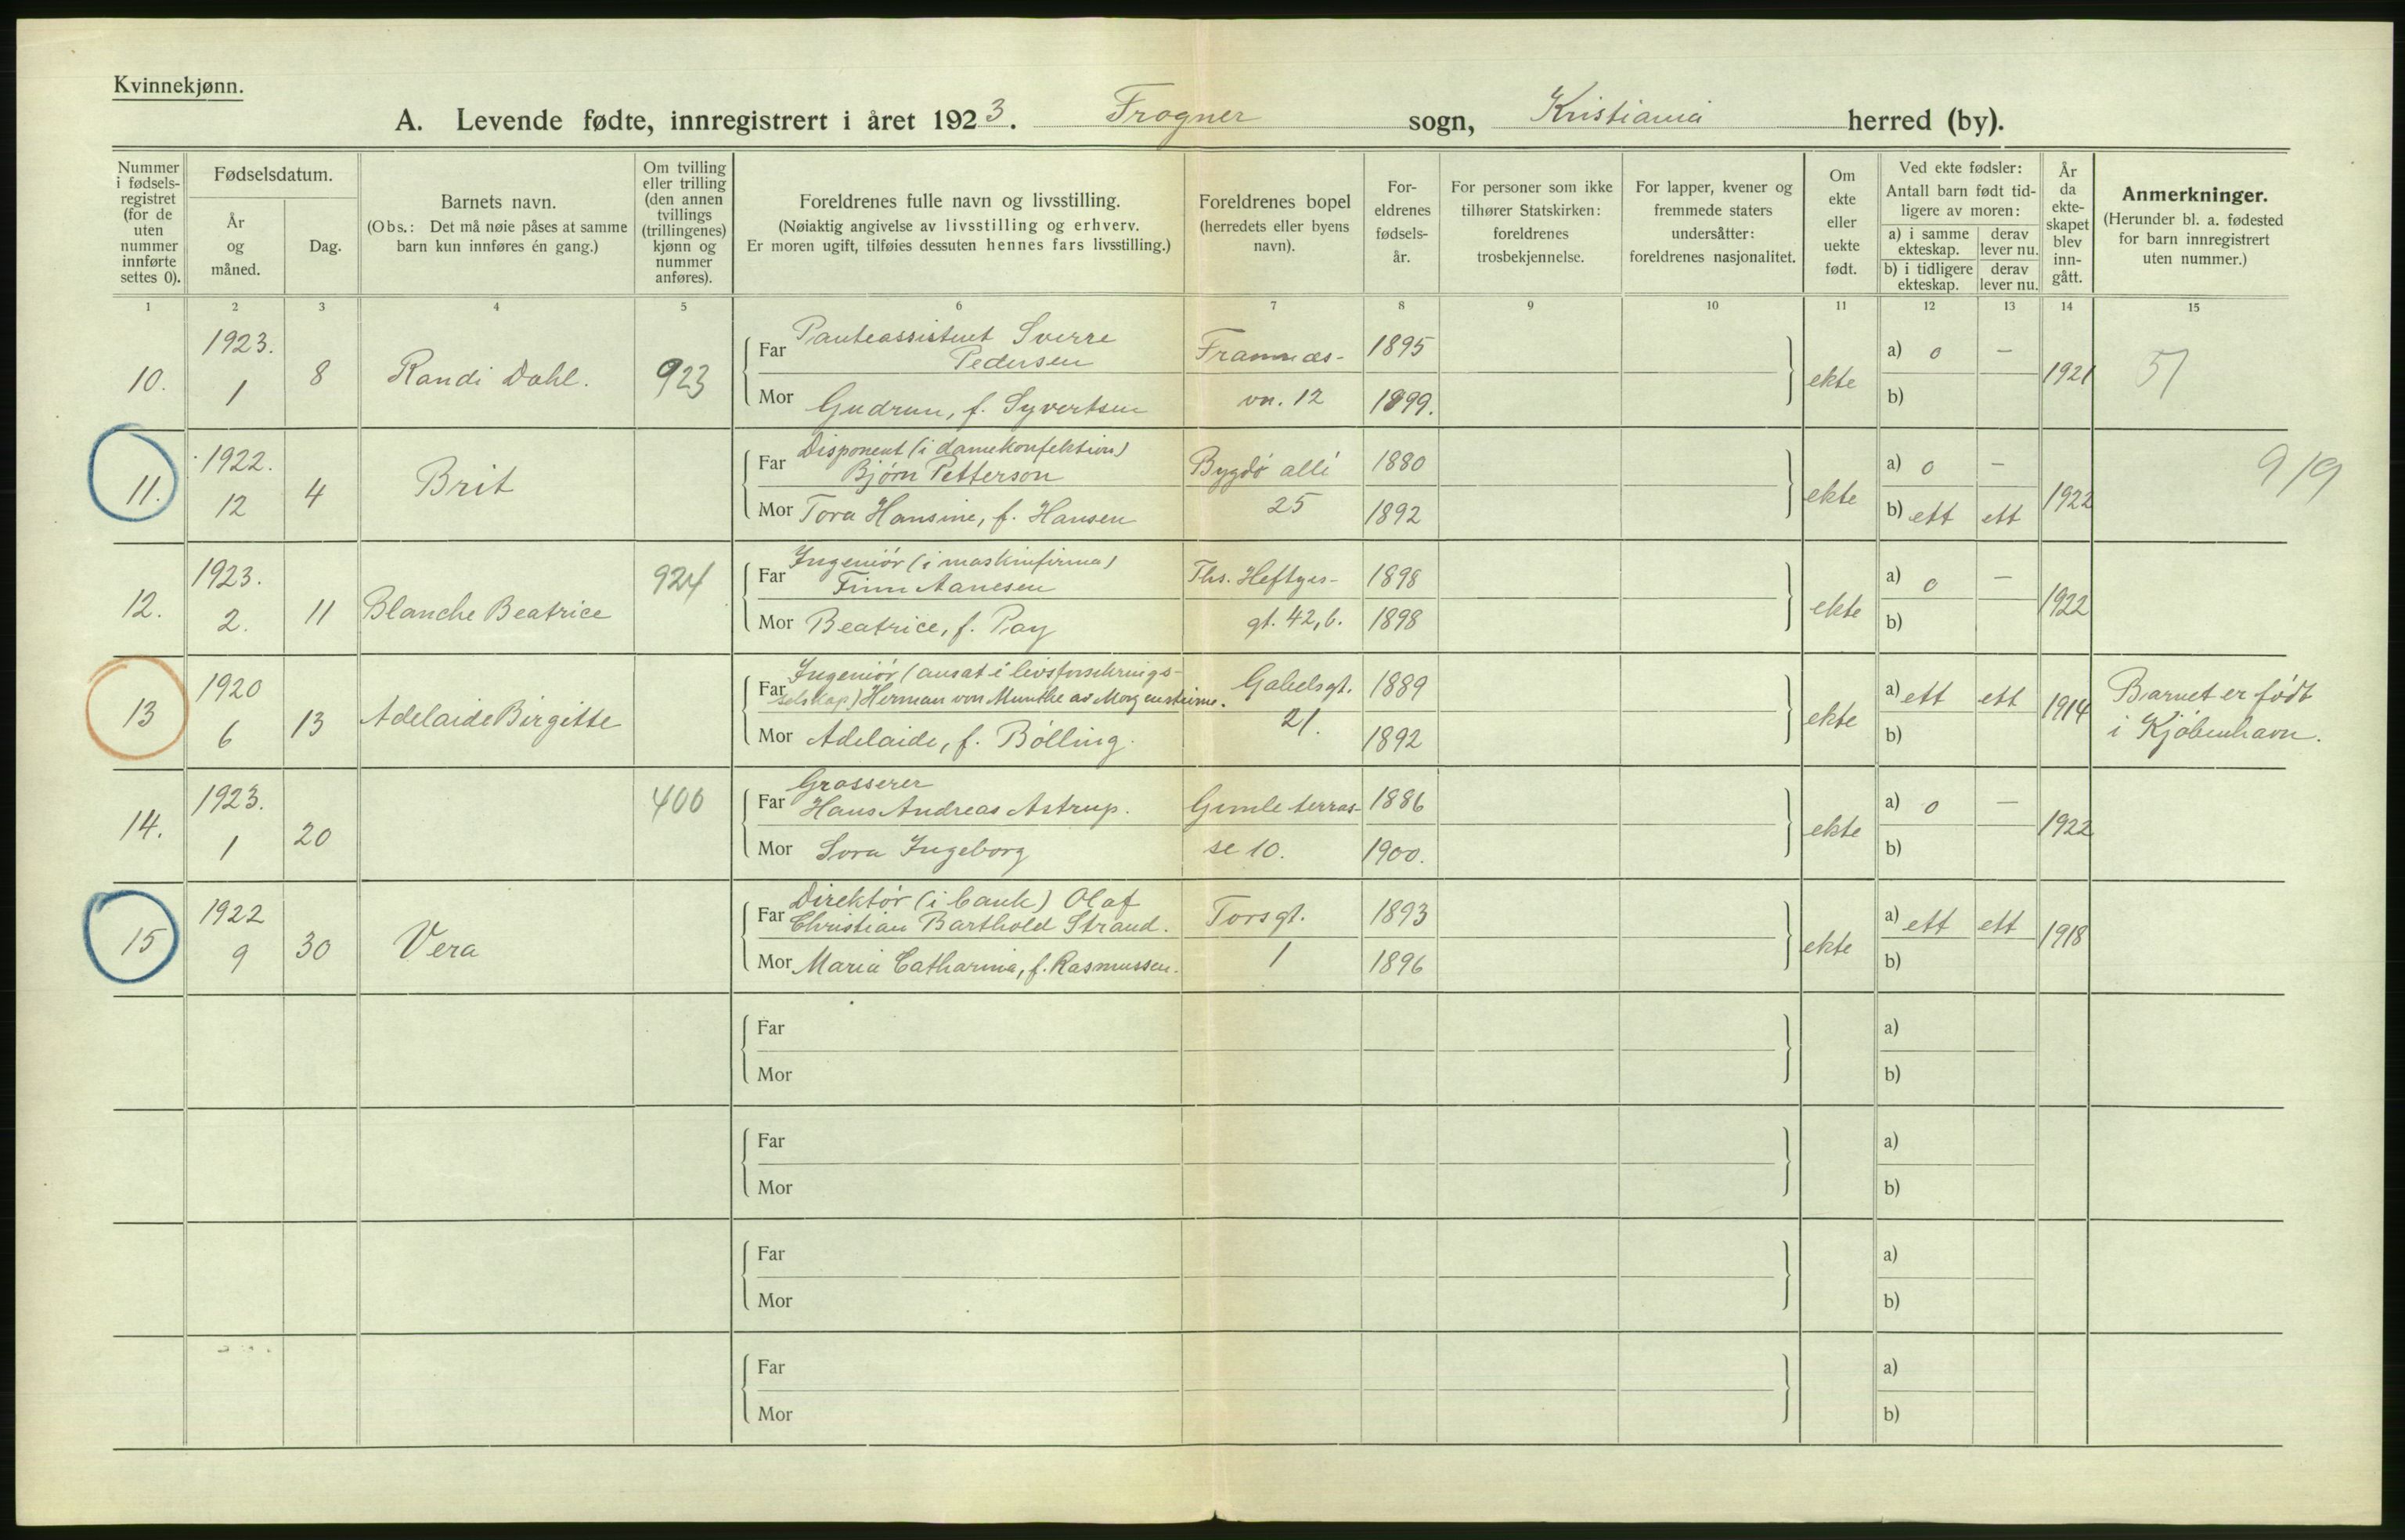 Kvinnekjønn.
A. Levende fødte, innregistrert i året 1923. Frogner sogn, Kristiania herred (by).
Nummer i fødsels-registret (for de uten nummer innførte settes 0).
Fødselsdatum.
År og måned.
Dag.
Barnets navn.
(Obs.: Det må nøie påses at samme barn kun innføres én gang.)
Om tvilling eller trilling (den annen tvillings (trillingenes) kjønn og nummer anføres).
Foreldrenes fulle navn og livsstilling.
(Nøiaktig angivelse av livsstilling og erhverv.
Er moren ugift, tilføies dessuten hennes fars livsstilling.)
Foreldrenes bopel
(herredets eller byens navn).
For-eldrenes fødsels-år.
For personer som ikke tilhører Statskirken: foreldrenes trosbekjennelse.
For lapper, kvener og fremmede staters undersåtter: foreldrenes nasjonalitet.
Om ekte eller uekte født.
Ved ekte fødsler:
Antall barn født tid-ligere av moren:
a) i samme ekteskap.
derav lever nu.
b) i tidligere ekteskap.
derav lever nu.
År da ekte-skapet blev inn-gått.
Anmerkninger.
(Herunder bl. a. fødested for barn innregistrert uten nummer.)
1 2 3 4 5 6 7 8 9 10 11 12 13 14 15
10. 1923. 1 8 Randi Dahl. 923
Far Panteassistent Sverre
Pedersen Framnæs- 1895
Mor Gudrun, f. Syvertsen vn. 12 1899.
ekte a) 0 — b) 1921 51
11. 1922. 12 4 Brit
Far Disponent (i damekonfektion)
Bjørn Petterson Bygdö allé 1880
Mor Tora Hansine, f. Hansen 25 1892
ekte a) 0 — b) ett ett 1922 919
12. 1923. 2. 11 Blanche Beatrice 924
Far Ingeniör (i maskinfirma)
Finn Aanesen Ths. Heftyes- 1898
Mor Beatrice, f. Pay gt. 42, b. 1898
ekte a) 0 — b) 1922
13 1920 6 13 Adelaide Birgitte
Far Ingeniör (ansat i livsforsikrings-
selskap) Herman von Munthe av Morgenstierne. Gabelsgt. 1889
Mor Adelaide, f. Bölling. 21. 1892
ekte a) ett ett b) 1914 Barnet er födt
i Kjöbenhavn.
14. 1923. 1 20 400
Far Grosserer
Hans Andreas Astrup. Gimle terras- 1886
Mor Lora Ingeborg se 10. 1900.
ekte a) 0 — b) 1922
15 1922 9 30 Vera
Far Direktör (i bank) Olaf
Christian Barthold Strand. Torsgt. 1893
Mor Maria Catharina, f. Rasmussen. 1 1896
ekte a) ett ett b) 1918
Far a)
Mor b)
Far a)
Mor b)
Far a)
Mor b)
Far a)
Mor b)